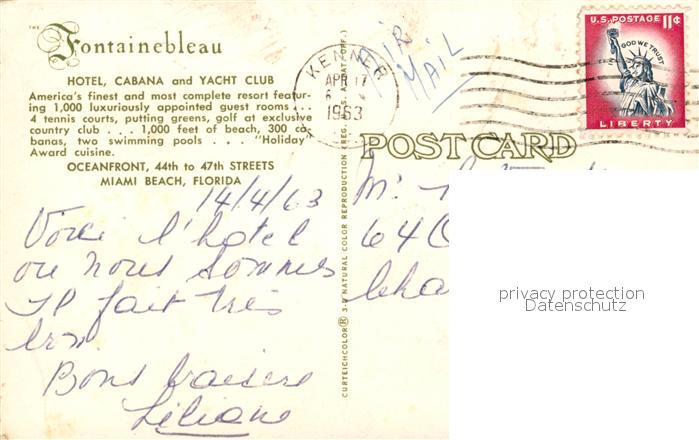 THE
Fontainebleau
HOTEL, CABANA and YACHT CLUB
America's finest and most complete resort featur-
ing 1,000 luxuriously appointed guest rooms . . .
4 tennis courts, putting greens, golf at exclusive
country club . . . 1,000 feet of beach, 300 ca-
banas, two swimming pools . . . "Holiday"
Award cuisine.
OCEANFRONT, 44th to 47th STREETS
MIAMI BEACH, FLORIDA
14/4/63
Voici l'hotel
ou nous sommes
Il fait très
bon.
Bons baisers
Liliane
CURTEICHCOLOR® 3-D NATURAL COLOR REPRODUCTION (REG. U.S.A. PAT. OFF.)
KENNER
APR 17
1963
AIR
MAIL
U.S. POSTAGE 11¢
IN GOD WE TRUST
LIBERTY
POST CARD
Mr
64
Cha
privacy protection
Datenschutz